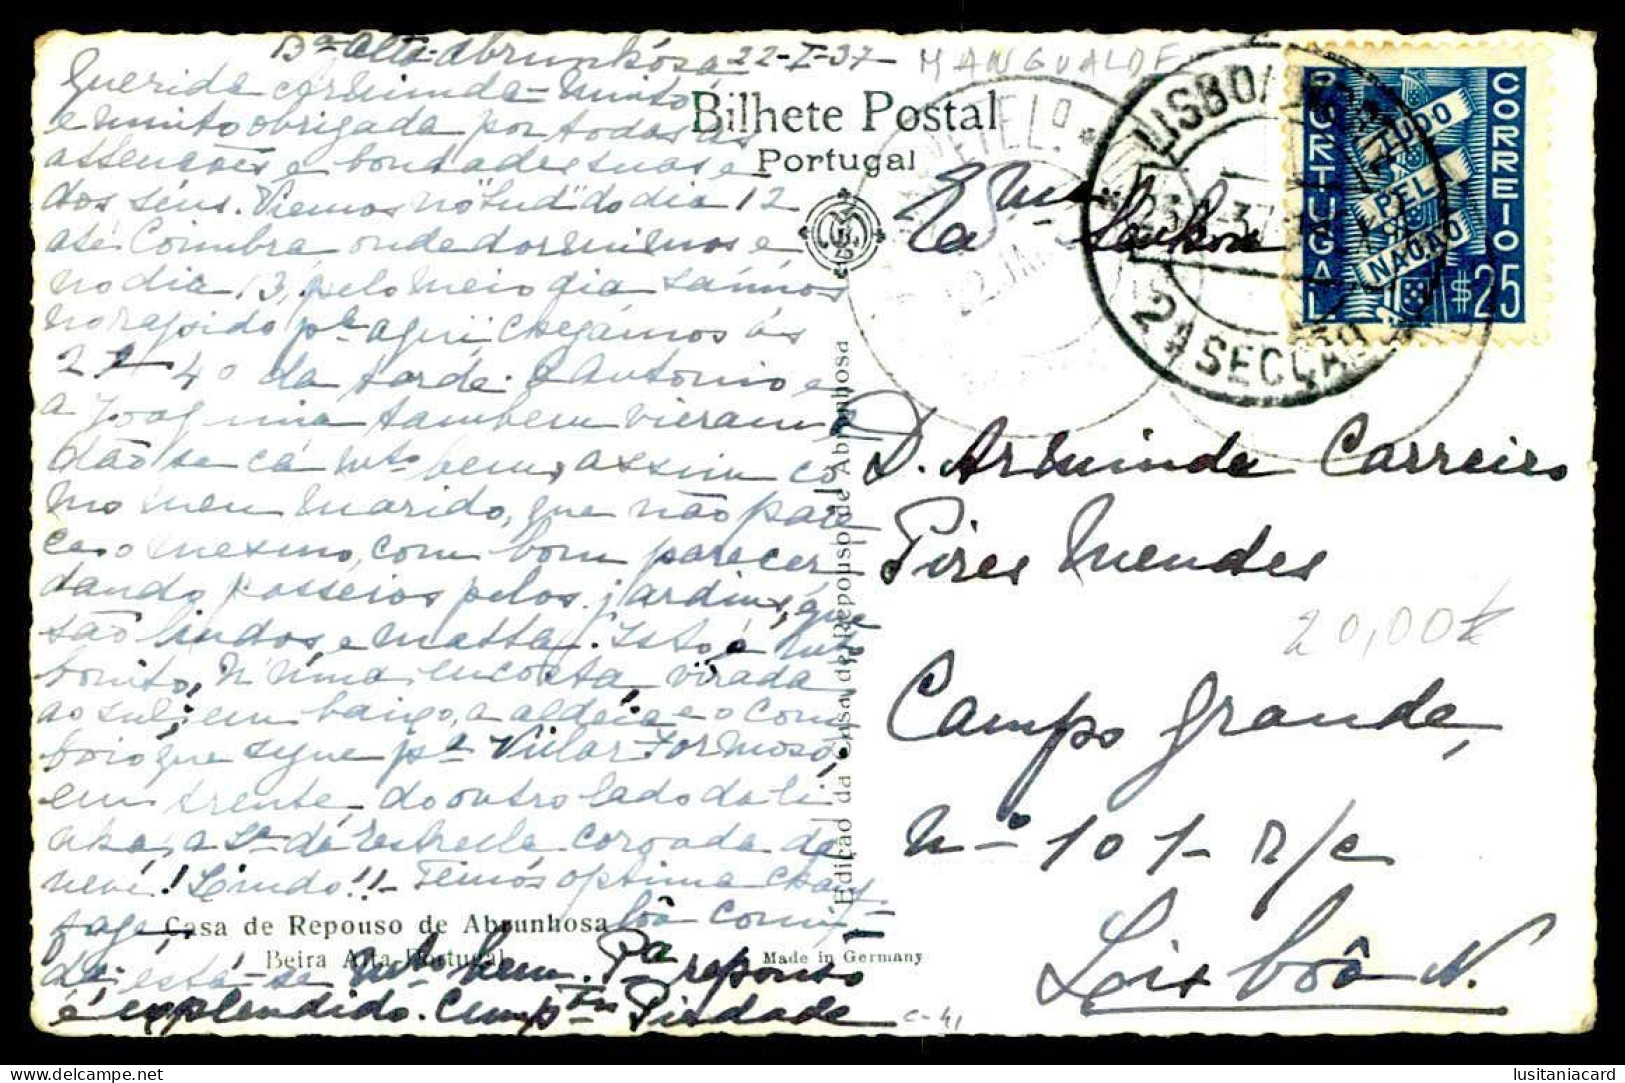 Bª Alta-Abrunhósa 22-I-37-
MANGUALDE
Querida Arminda - Muito
e muito obrigada por todas as
attenções e bondades suas e
dos séus. Viemos no "Sud" do dia 12
até Coimbra onde dormimos e
no dia 13, pelo meio dia saímos
no rapido pª aqui chegámos ás
4º da tarde. O Antonio e
a Joaquina tambem vieram e
dão-se cá mtº bem, assim co
mo meu marido, que não pare
ce o mesmo, com bom parecer
dando passeios pelos jardins, que
são lindos, e matta. Isto é mtº
bonito, n'uma encosta virada
ao sul; em baixo, a aldeia e o com
boio que segue pª Vilar Formoso,
em frente, do outro lado da li
nha, a Sª da Estrella coroada de
neve! Lindo!! - Temos optima
bôa comi-
da está-se mtº bem. Pª repouso
é esplendido. Cumptºs Piedade
Bilhete Postal
Portugal
Edição da Casa de Repouso de Abrunhosa
Casa de Repouso de Abrunhosa
Beira Alta-Portugal
Made in Germany
C-41
LISBOA
2ª SECÇÃO
PORTUGAL
CORREIO
TUDO
PELA
NAÇÃO
$25
Exma
Senhora
D. Arminda Carreiro
Pires Mendes
20,00
Campo Grande,
Nº 101- R/c
Lisbôa N.
lusitaniacard